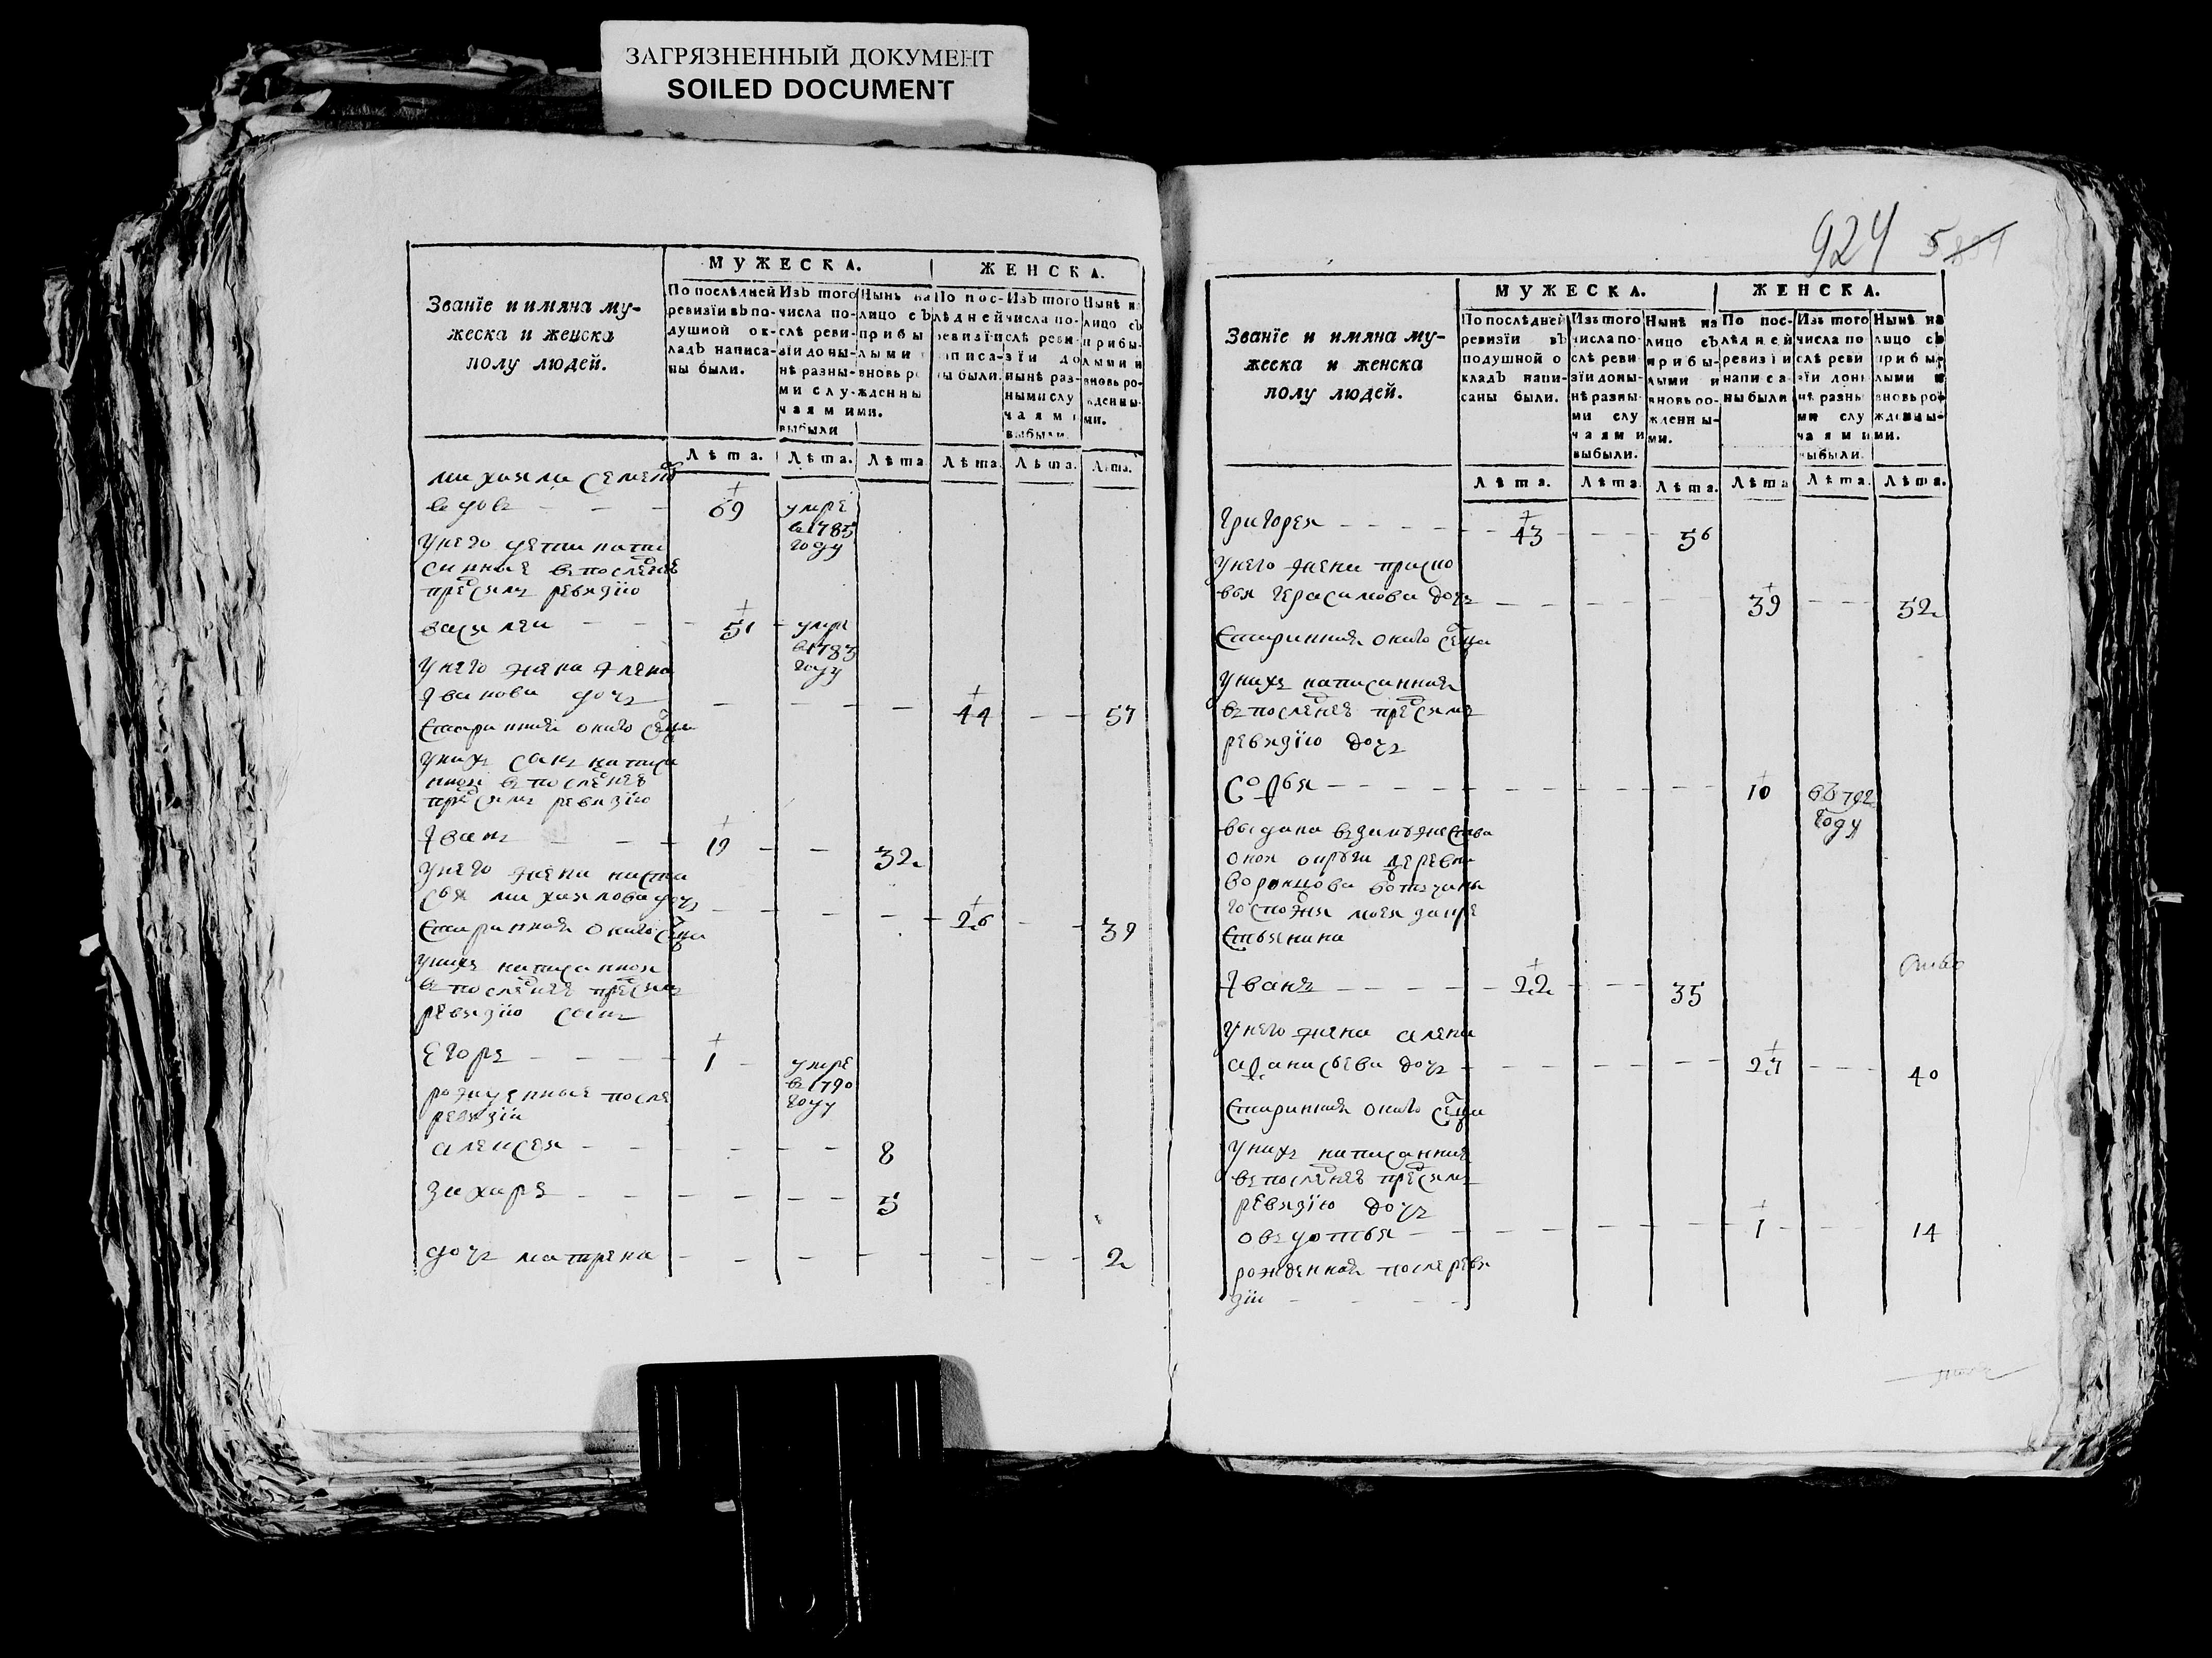 ЗАГРЯЗНЕННЫЙ ДОКУМЕНТ
SOILED DOCUMENT
Званїе и имяна му-
жеска и женска
полу людей.
МУЖЕСКА.
ЖЕНСКА.
По послѣдней
ревизїи въ по-
душной ок-
ладъ написа-
ны были.
Изъ того
числа по-
слѣ реви-
зїи до ны-
нѣ разны-
ми слу-
чаями
выбыли
Нынѣ на
лицо съ
прибы
лыми
вновь ро
жденны
ми.
По пос-
лѣдней
ревизїи
написа-
ны были.
Изъ того
числа по-
слѣ реви-
зїи до
нынѣ раз-
ными слу
чаями
выбыли.
Нынѣ на
лицо съ
прибы-
лыми и
вновь ро-
жденны-
ми.
Лѣта. Лѣта. Лѣта Лѣта Лѣта. Лѣта.
михаила семено
въ 69 умре
в 1785
году
унего дети напи
санные впоследнею
пред симъ ревизїю
василеи 51 умре
в 1783
году
унего жена Алена
Иванова дочь 44 57
старинная оного селца
унихъ сынъ написа
нной впоследнею
пред симъ ревизїю
Иванъ 19 32
унего жена наста
сья михаилова дочь 26 39
старинная оного селца
унихъ написанной
впоследнею пред симъ
ревизїю сынъ
Егоръ 1 умре
в 1790
году
рожденные после
ревизїи
алексеи 8
захаръ 5
дочь матрена 2
924 5
Званїе и имяна му-
жеска и женска
полу людей.
МУЖЕСКА.
ЖЕНСКА.
По послѣдней
ревизїи въ
подушной о
кладъ напи-
саны были.
Изъ того
числа по-
слѣ реви-
зїи до ны-
нѣ разны-
ми слу
чаями
выбыли.
Нынѣ на
лицо съ
прибы-
лыми и
вновь ро-
жденны-
ми.
По пос-
лѣдней
ревизїи
написа-
ны были
Изъ того
числа по
слѣ реви
зїи до ны
нѣ разны
ми слу
чаями
выбыли.
Нынѣ на
лицо съ
прибы-
лыми и
вновь ро
жденны-
ми.
Лѣта. Лѣта Лѣта. Лѣта Лѣта. Лѣта.
Григореи 43 56
унего жена праско
вья Герасимова дочь 39 52
старинная оного селца
унихъ написанная
впоследнею пред симъ
ревизїю дочь
Софья 10 въ 792
году
выдана взамужество
оной округи деревни
воронцова вотчины
госпожи за кре
стьянина
Иванъ 22 35
унего жена алена
афанасьева дочь 27 40
старинная оного селца
унихъ написанная
впоследнею пред симъ
ревизїю дочь
овдотья 1 14
рожденная после реви
зїи